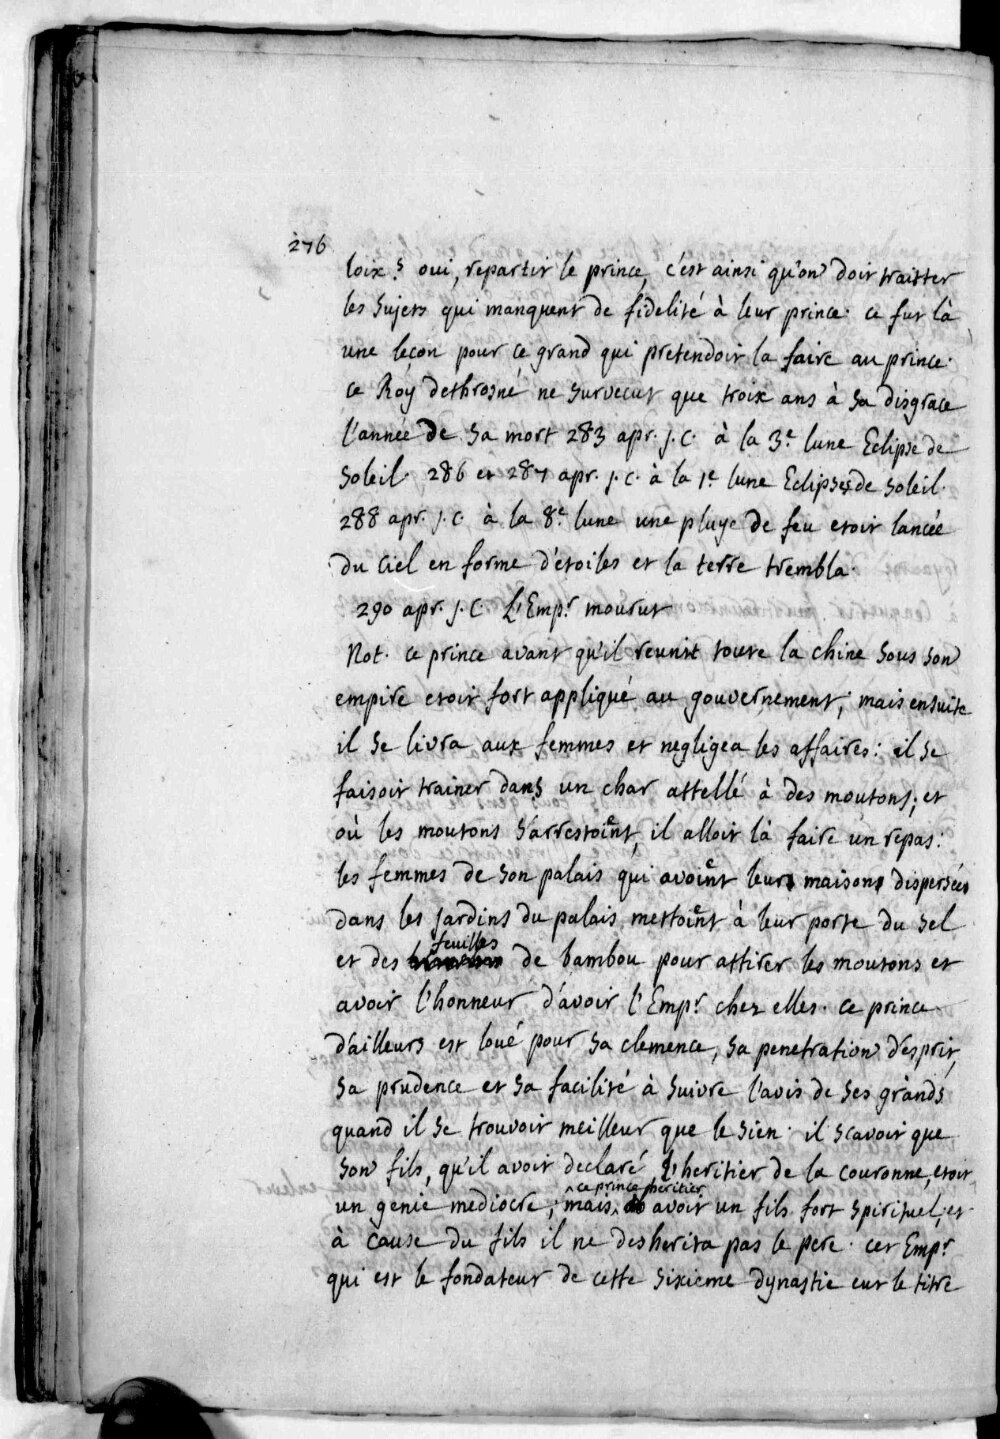 276
loix? oui, repartit le prince, c'est ainsi qu'on doit traitter
les sujets qui manquent de fidelité à leur prince. ce fut là
une leçon pour ce grand qui pretendoit la faire au prince.
ce Roy dethrosné ne survecut que troix ans à sa disgrace
l'année de sa mort 283 apr. j.c. à la 3e lune Eclipse de
soleil. 286 et 287 apr. j.c. à la 1e lune Eclipses de soleil.
288 apr. j.c. à la 8e lune une pluye de feu etoit lancée
du ciel en forme d'étoiles et la terre trembla.
290 apr. j.c. L'Empr mourut
Not. ce prince avant qu'il reunit toute la chine sous son
empire etoit fort appliqué au gouvernement; mais ensuite
il se livra aux femmes et negligea les affaires: il se
faisoit trainer dans un char attellé à des moutons; et
où les moutons s'arrestoient, il alloit là faire un repas:
les femmes de son palais qui avoient leurs maisons dispersées
dans les jardins du palais mettoient à leur porte du sel
feuilles
et des de bambou pour attirer les moutons et
avoir l'honneur d'avoir l'Empr chez elles. ce prince
d'ailleurs est loué pour sa clemence, sa penetration d'esprit,
sa prudence et sa facilité à suivre l'avis de ses grands
quand il se trouvoit meilleur que le sien. il scavoit que
son fils, qu'il avoit declaré l'heritier de la couronne, etoit
ce prince heritier
un genie mediocre; mais avoit un fils fort spirituel; et
à cause du fils il ne desherita pas le pere. cet Empr
qui est le fondateur de cette sixieme dynastie eut le titre